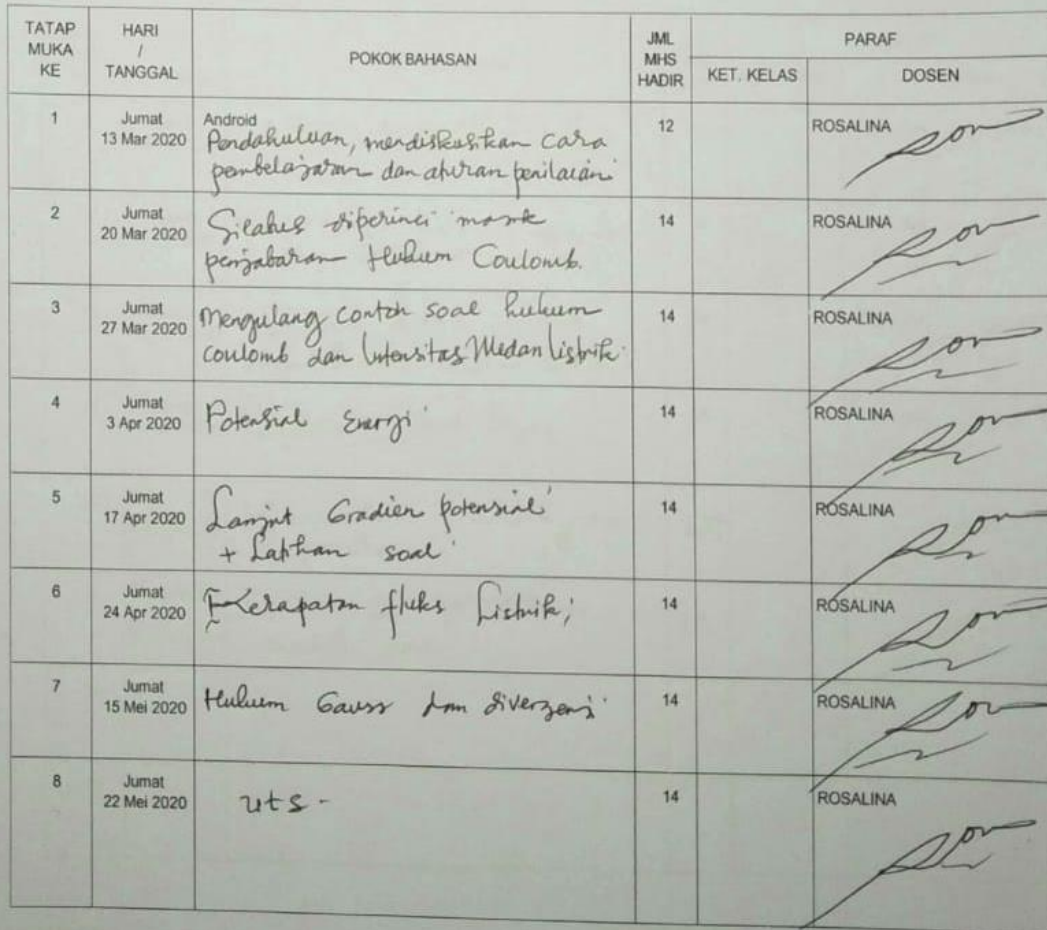 TATAP MUKA KE
HARI / TANGGAL
POKOK BAHASAN
JML MHS HADIR
PARAF
KET. KELAS
DOSEN
1
Jumat
13 Mar 2020
Android
Pendahuluan, mendiskusikan cara
pembelajaran dan aturan penilaian
12
ROSALINA
2
Jumat
20 Mar 2020
Silabus diperinci masuk
penjabaran Hukum Coulomb.
14
ROSALINA
3
Jumat
27 Mar 2020
Mengulang contoh soal hukum
coulomb dan Intensitas Medan listrik
14
ROSALINA
4
Jumat
3 Apr 2020
Potensial Energi
14
ROSALINA
5
Jumat
17 Apr 2020
Lanjut Gradien potensial
+ Latihan soal
14
ROSALINA
6
Jumat
24 Apr 2020
Kerapatan fluks Listrik;
14
ROSALINA
7
Jumat
15 Mei 2020
Hukum Gauss dan divergensi
14
ROSALINA
8
Jumat
22 Mei 2020
uts -
14
ROSALINA